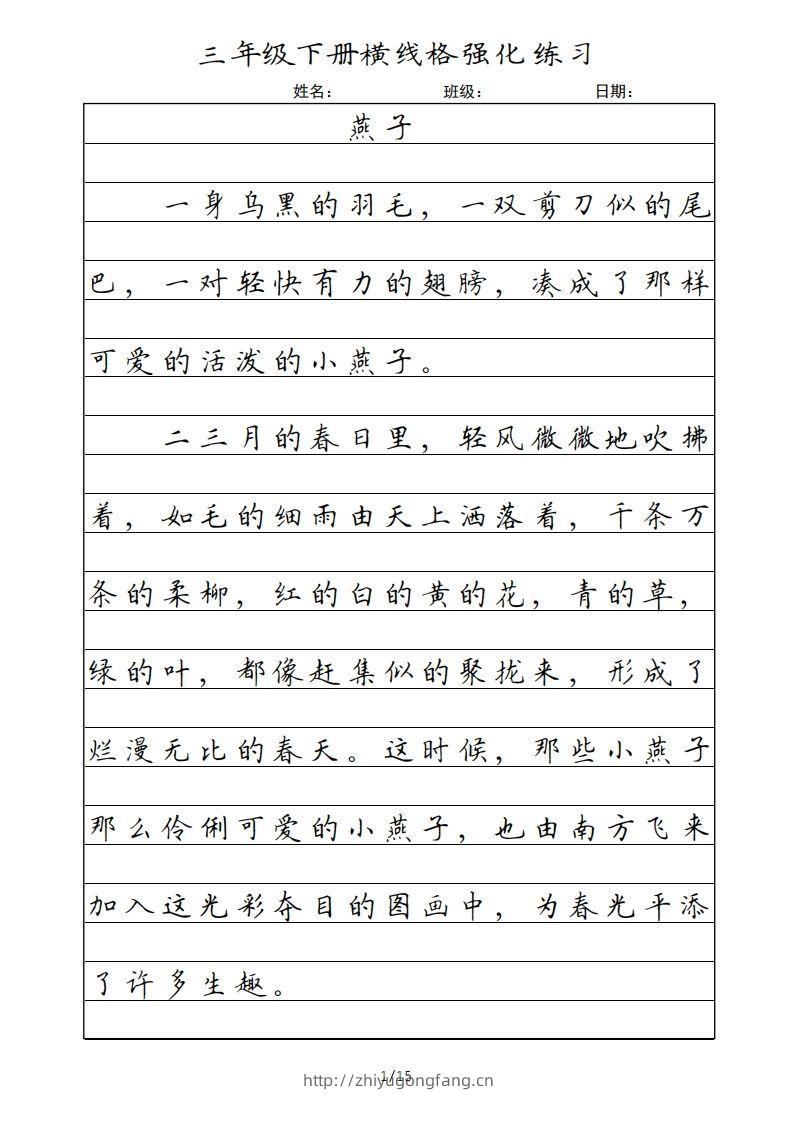 三年级下册横线格强化练习
姓名： 班级： 日期：
燕子
一身乌黑的羽毛，一双剪刀似的尾
巴，一对轻快有力的翅膀，凑成了那样
可爱的活泼的小燕子。
二三月的春日里，轻风微微地吹拂
着，如毛的细雨由天上洒落着，千条万
条的柔柳，红的白的黄的花，青的草，
绿的叶，都像赶集似的聚拢来，形成了
烂漫无比的春天。这时候，那些小燕子
那么伶俐可爱的小燕子，也由南方飞来
加入这光彩夺目的图画中，为春光平添
了许多生趣。
1/15
http://zhiyugongfang.cn